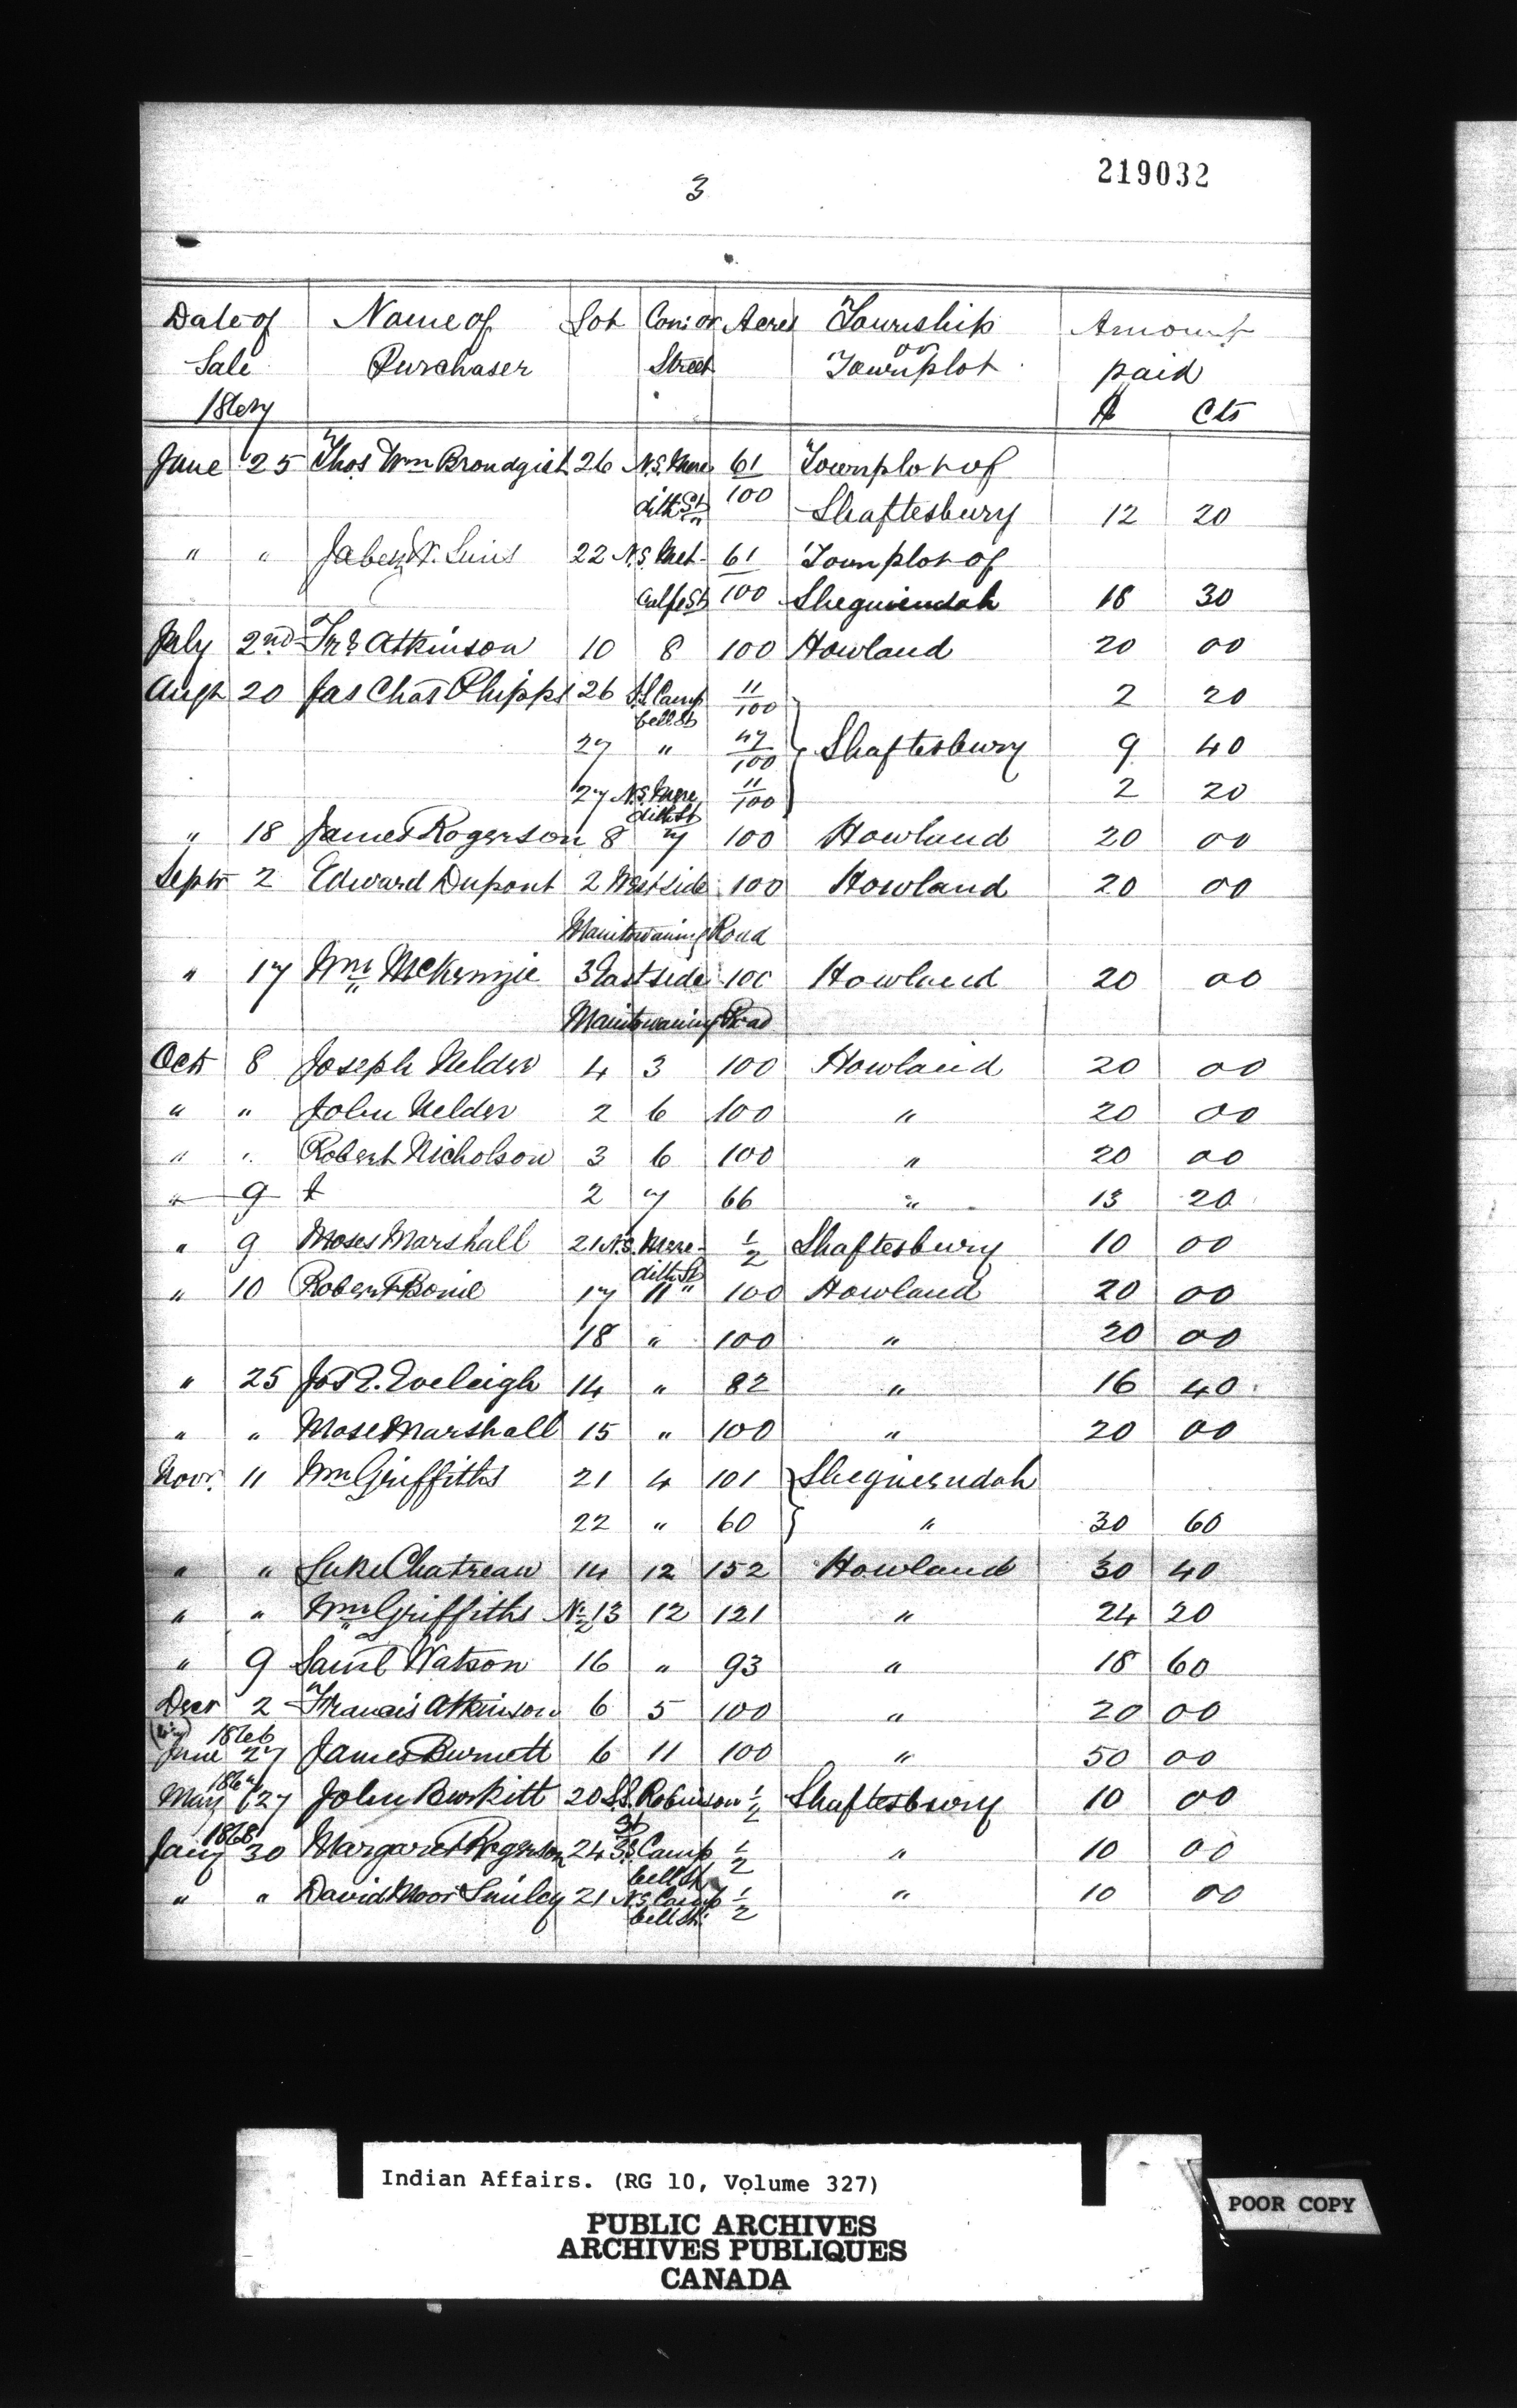 3
219032
Date of Name of Lot Con: or Acres Township Amount
Sale Purchaser Street or Townplot paid
1867 $ Cts
June 25 Thos. Wm Brondgish 26 N.S. Mere 61 Townplot of
dith St 100 Shaftesbury 12 20
" " Jabez W. 22 N.S. Met- 61 Townplot of
calfe St 100 Sheguiendah 18 30
July 2nd Frs Atkinson 10 8 100 Howland 20 00
Augt 20 Jas Chas Phipps 26 S.S. Camp 11/100 2 20
bell St
27 " 47/100 } Shaftesbury 9 40
27 N.S. Mere 11/100 2 20
dith St
" 18 James Rogerson 8 7 100 Howland 20 00
Septr 2 Edward Dupont 2 West side 100 Howland 20 00
Manitowaning Road
" 17 Wm McKenzie 3 East side 100 Howland 20 00
Manitowaning Road
Oct 8 Joseph Nelder 4 3 100 Howland 20 00
" " John Nelder 2 6 100 " 20 00
" " Robert Nicholson 3 6 100 " 20 00
" 9 2 7 66 " 13 20
" 9 Moses Marshall 21 N.S. Mere- 1/2 Shaftesbury 10 00
dith St
" 10 Robert Boni 17 11 " 100 Howland 20 00
18 " 100 " 20 00
" 25 Jos E. Eveleigh 14 " 82 " 16 40
" " Mose Marshall 15 " 100 " 20 00
Novr. 11 Wm Griffiths 21 4 101 } Sheguiendah
22 " 60 } " 30 60
" " Luke Chatreau 14 12 152 Howland 30 40
" " Wm Griffiths N 1/2 13 12 121 " 24 20
" 9 Saml Watson 16 " 93 " 18 60
Decr 2 Francis Atkinson 6 5 100 " 20 00
1866
June 27 James Burnett 6 11 100 " 50 00
1867
May 27 John Burkitt 20 S.S. Robinson 1/2 Shaftesbury 10 00
St
1868
Jany 30 Margaret Rogerson 24 S.S. Camp 1/2 " 10 00
bell St
" " David Moor Smiley 21 N.S. Camp 1/2 " 10 00
bell St.
Indian Affairs. (RG 10, Volume 327)
PUBLIC ARCHIVES
ARCHIVES PUBLIQUES
CANADA
POOR COPY